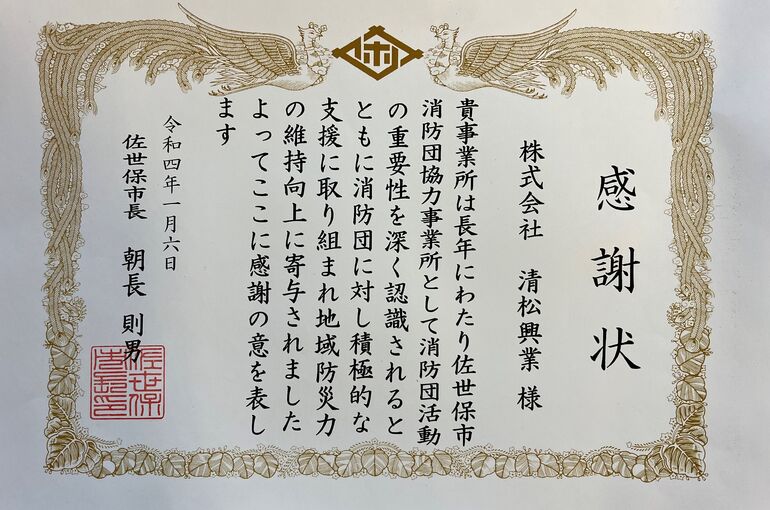 感謝状
株式会社 清松興業 様
貴事業所は長年にわたり佐世保市
消防団協力事業所として消防団活動
の重要性を深く認識されると
ともに消防団に対し積極的な
支援に取り組まれ地域防災力
の維持向上に寄与されました
よってここに感謝の意を表し
ます
令和四年一月六日
佐世保市長 朝長 則男